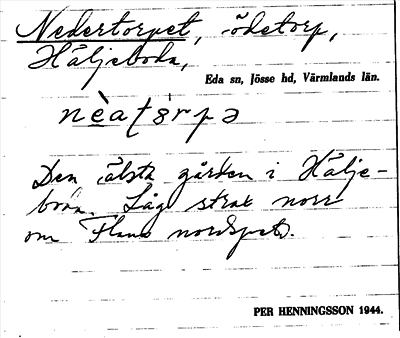 Nedertorpet, ödetorp,
Häljeboda,
Eda sn, Jösse hd, Värmlands län.
Den älsta gården i Hälje-
boda. Låg strax norr
om nordspets.
PER HENNINGSSON 1944.